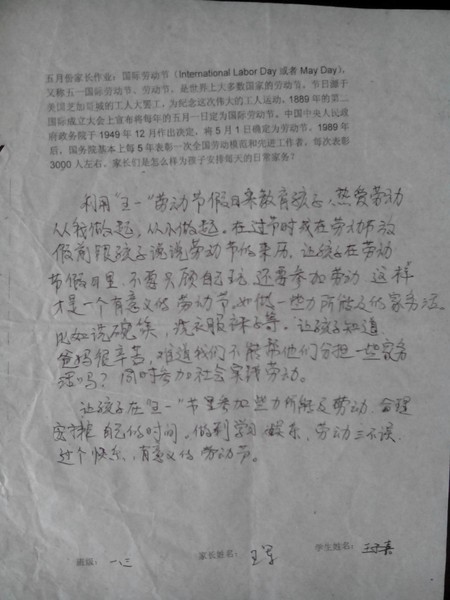 五月份家长作业：国际劳动节（International Labor Day 或者 May Day），
又称五一国际劳动节、劳动节，是世界上大多数国家的劳动节。节日源于
美国芝加哥城的工人大罢工，为纪念这次伟大的工人运动，1889年的第二
国际成立大会上宣布将每年的五月一日定为国际劳动节。中国中央人民政
府政务院于1949年12月作出决定，将5月1日确定为劳动节。1989年
后，国务院基本上每5年表彰一次全国劳动模范和先进工作者，每次表彰
3000人左右。家长们是怎么样为孩子安排每天的日常家务？
利用"五一"劳动节假日来教育孩子，热爱劳动
从我做起，从小做起，在过节时我在劳动节放
假前跟孩子说说劳动节的来历，让孩子在劳动
节假日里，不要只顾自己玩，还要参加劳动，这样
才是一个有意义的劳动节。如做一些力所能及的家务活。
比如说洗碗筷，洗衣服袜子等。让孩子知道
爸妈很辛苦，难道我们不能帮他们分担一些家务
活吗？同时参加社会实践劳动。
让孩子在"五一"节里参加些力所能及劳动，合理
安排 自己的时间。做到学习 娱乐，劳动三不误
过个快乐，有意义的劳动节。
班级： 家长姓名：王军 学生姓名：